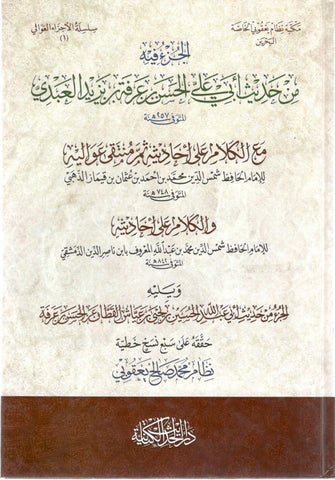 مكتبة نظام يعقوبي الخاصة
البحرين
سلسلة الأجزاء العوالي
(١)
الجزء فيه
من حديث أبي علي الحسن بن عرفة بن يزيد العبدي
المتوفى سنة ٢٥٧هـ
مع الكلام على أحاديثه ثم منتقى عواليه
للإمام الحافظ شمس الدين محمد بن أحمد بن عثمان بن قيماز الذهبي
المتوفى سنة ٧٤٨هـ
والكلام على أحاديثه
للإمام الحافظ شمس الدين محمد بن عبد الله المعروف بابن ناصر الدين الدمشقي
المتوفى سنة ٨٤٢هـ
ويليه
الجزء من حديث أبي عبد الله الحسين بن يحيى بن عياش القطان عن الحسن بن عرفة
حققه على سبع نسخ خطية
نظام محمد صالح يعقوبي
دار الحديث الكتانية